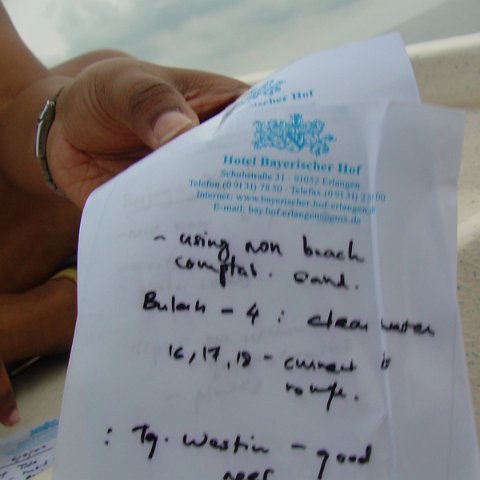 Bayerischer Hof
Hotel Bayerischer Hof
Schuhstraße 31 · 91052 Erlangen
Telefon (09131) 7850 · Telefax (09131) 25
Internet: www.bayerischer-hof-erlangen
E-mail: bay.hof.erlangen@gmx.de
- using non beach
comptal. sand.
- 4 : clear water
16, 17, 18 - current is
rough.
: Tg. Westin - good
reef